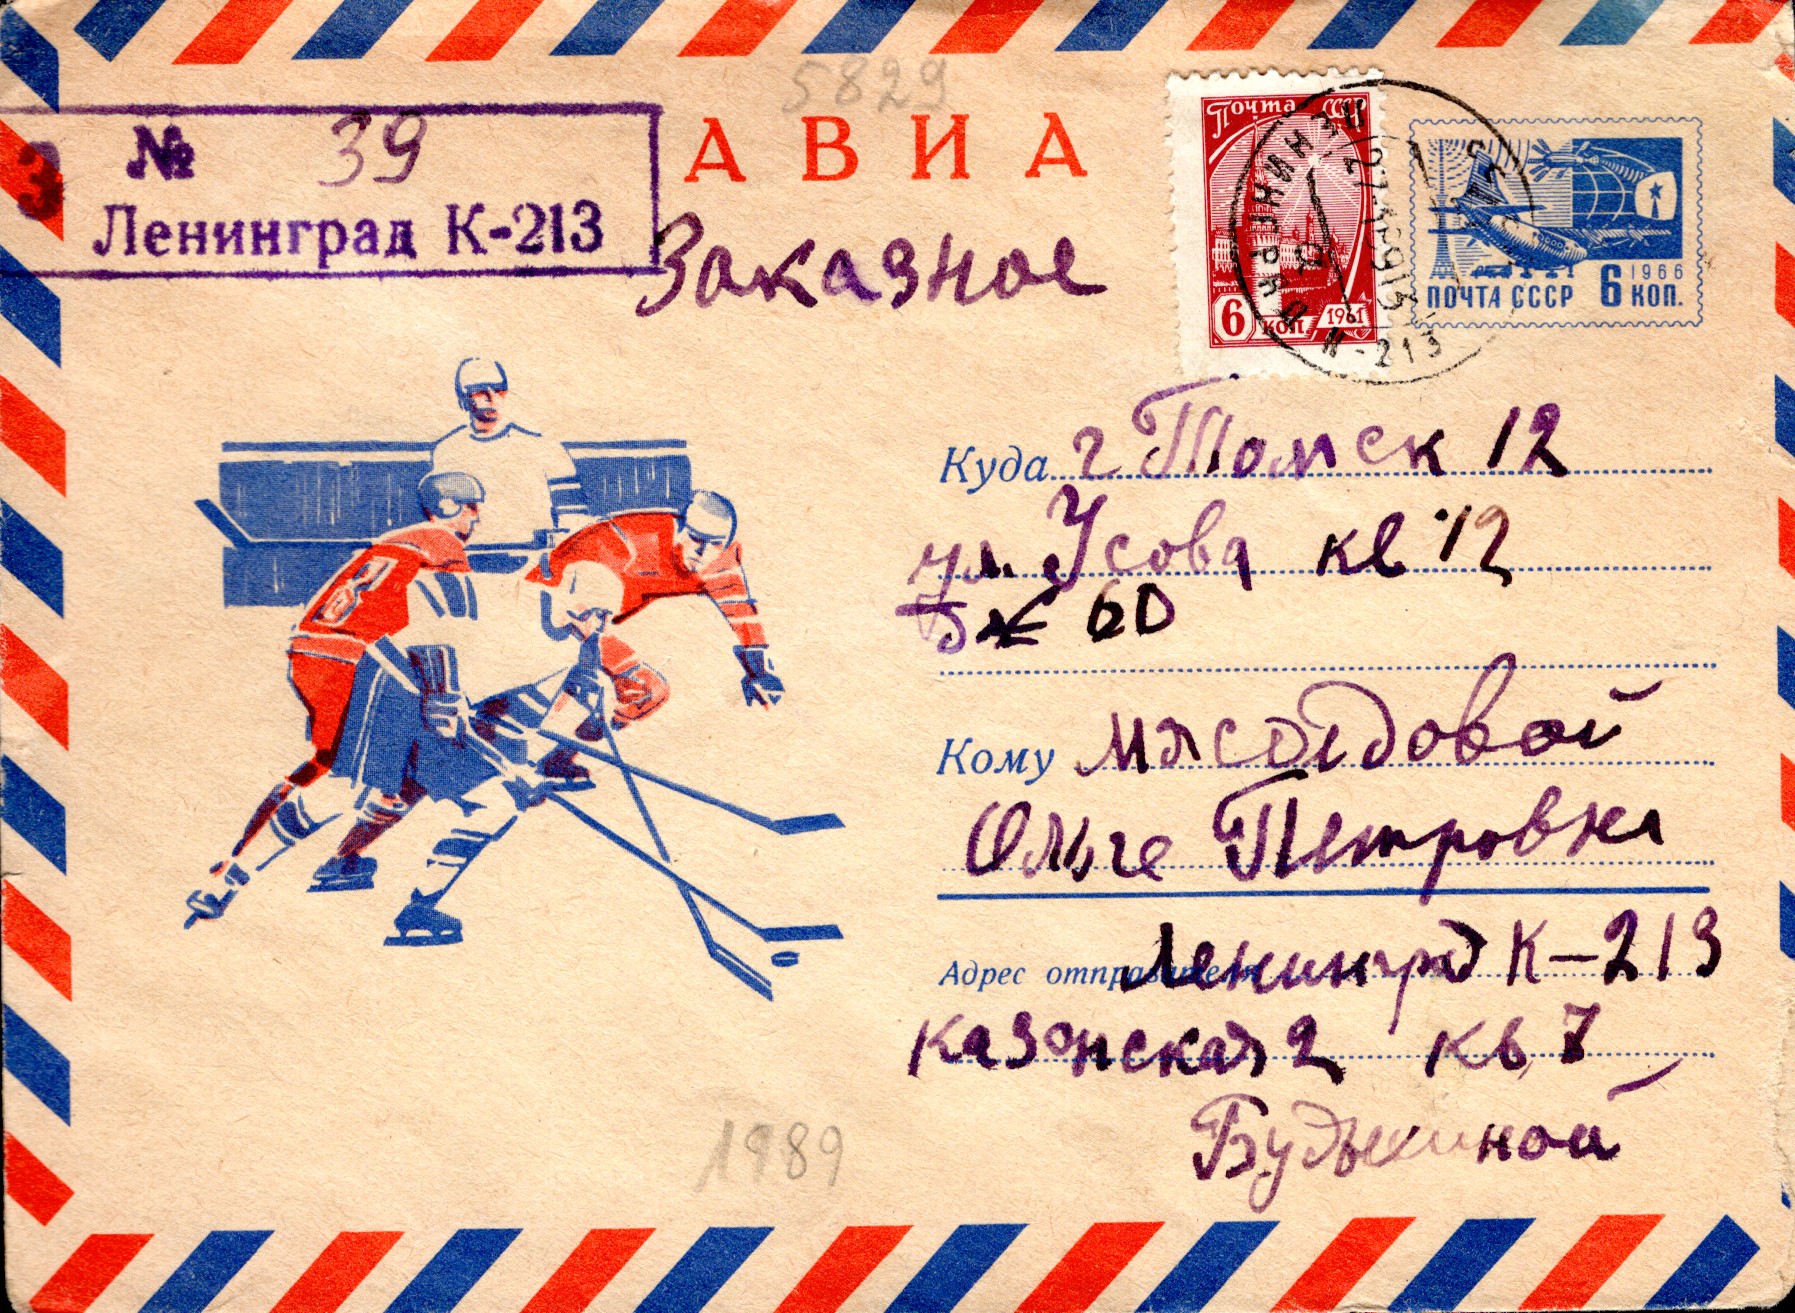 5829
З № 39
Ленинград К-213
АВИА
Заказное
Почта СССР
6 коп. 1961
ЛЕНИНГРАД К-213
1966
ПОЧТА СССР 6 КОП.
Куда г Томск 12
ул. Усова кв 12
60
Кому Мясоедовой
Ольге Петровне
Адрес отправителя Ленинград К-213
Казанская 2 кв 7
1989